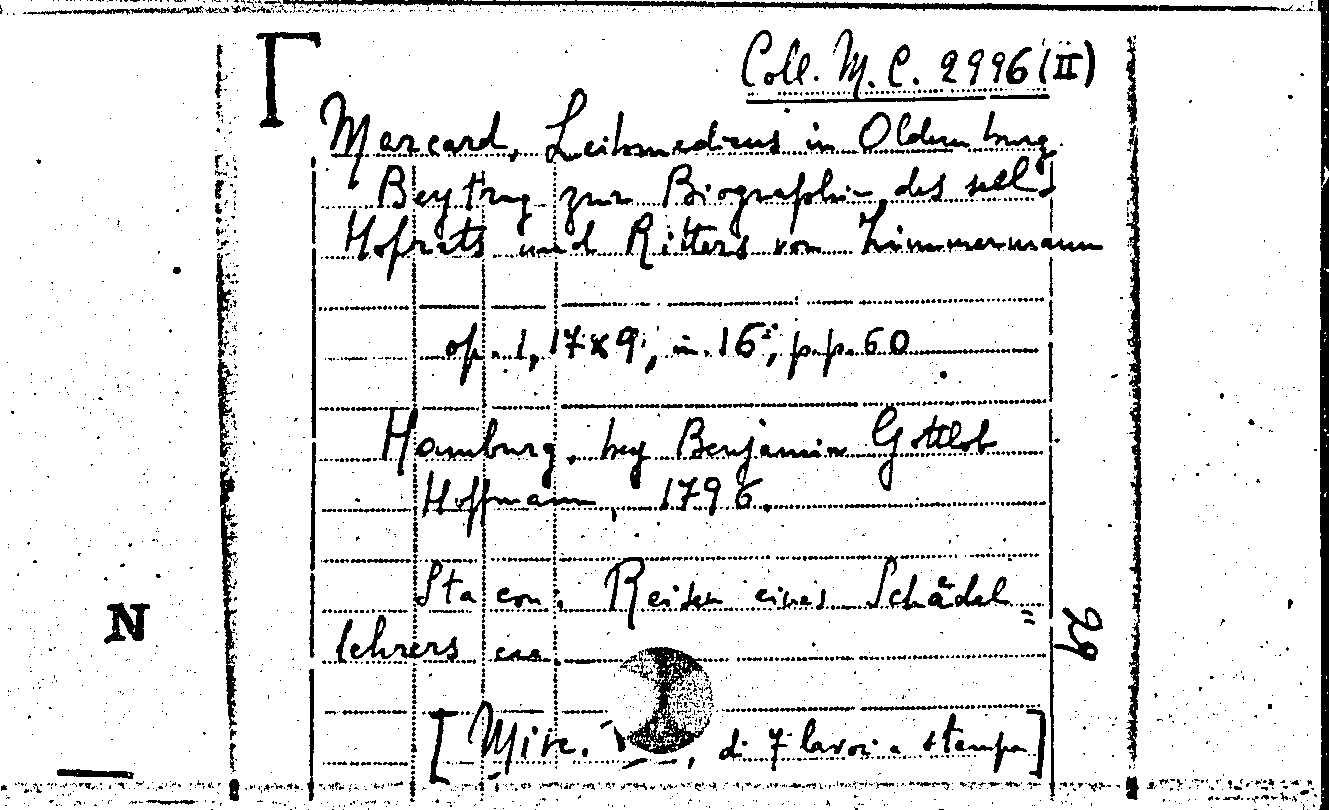 Coll. M. C. 2996 (II)
Marcard, Leibmedicus in Oldenburg
Beytrag zur Biographie des seel.
Hofrats und Ritters von Zimmermann
op. 1, 17x9, in 16°, pp. 60
Hamburg, bey Benjamin Gottlob
Hoffmann, 1796.
Sta con: Reisen eines Schädel=
lehrers ecc.
29
N
[Misc. , di 7 lavori a stampa]